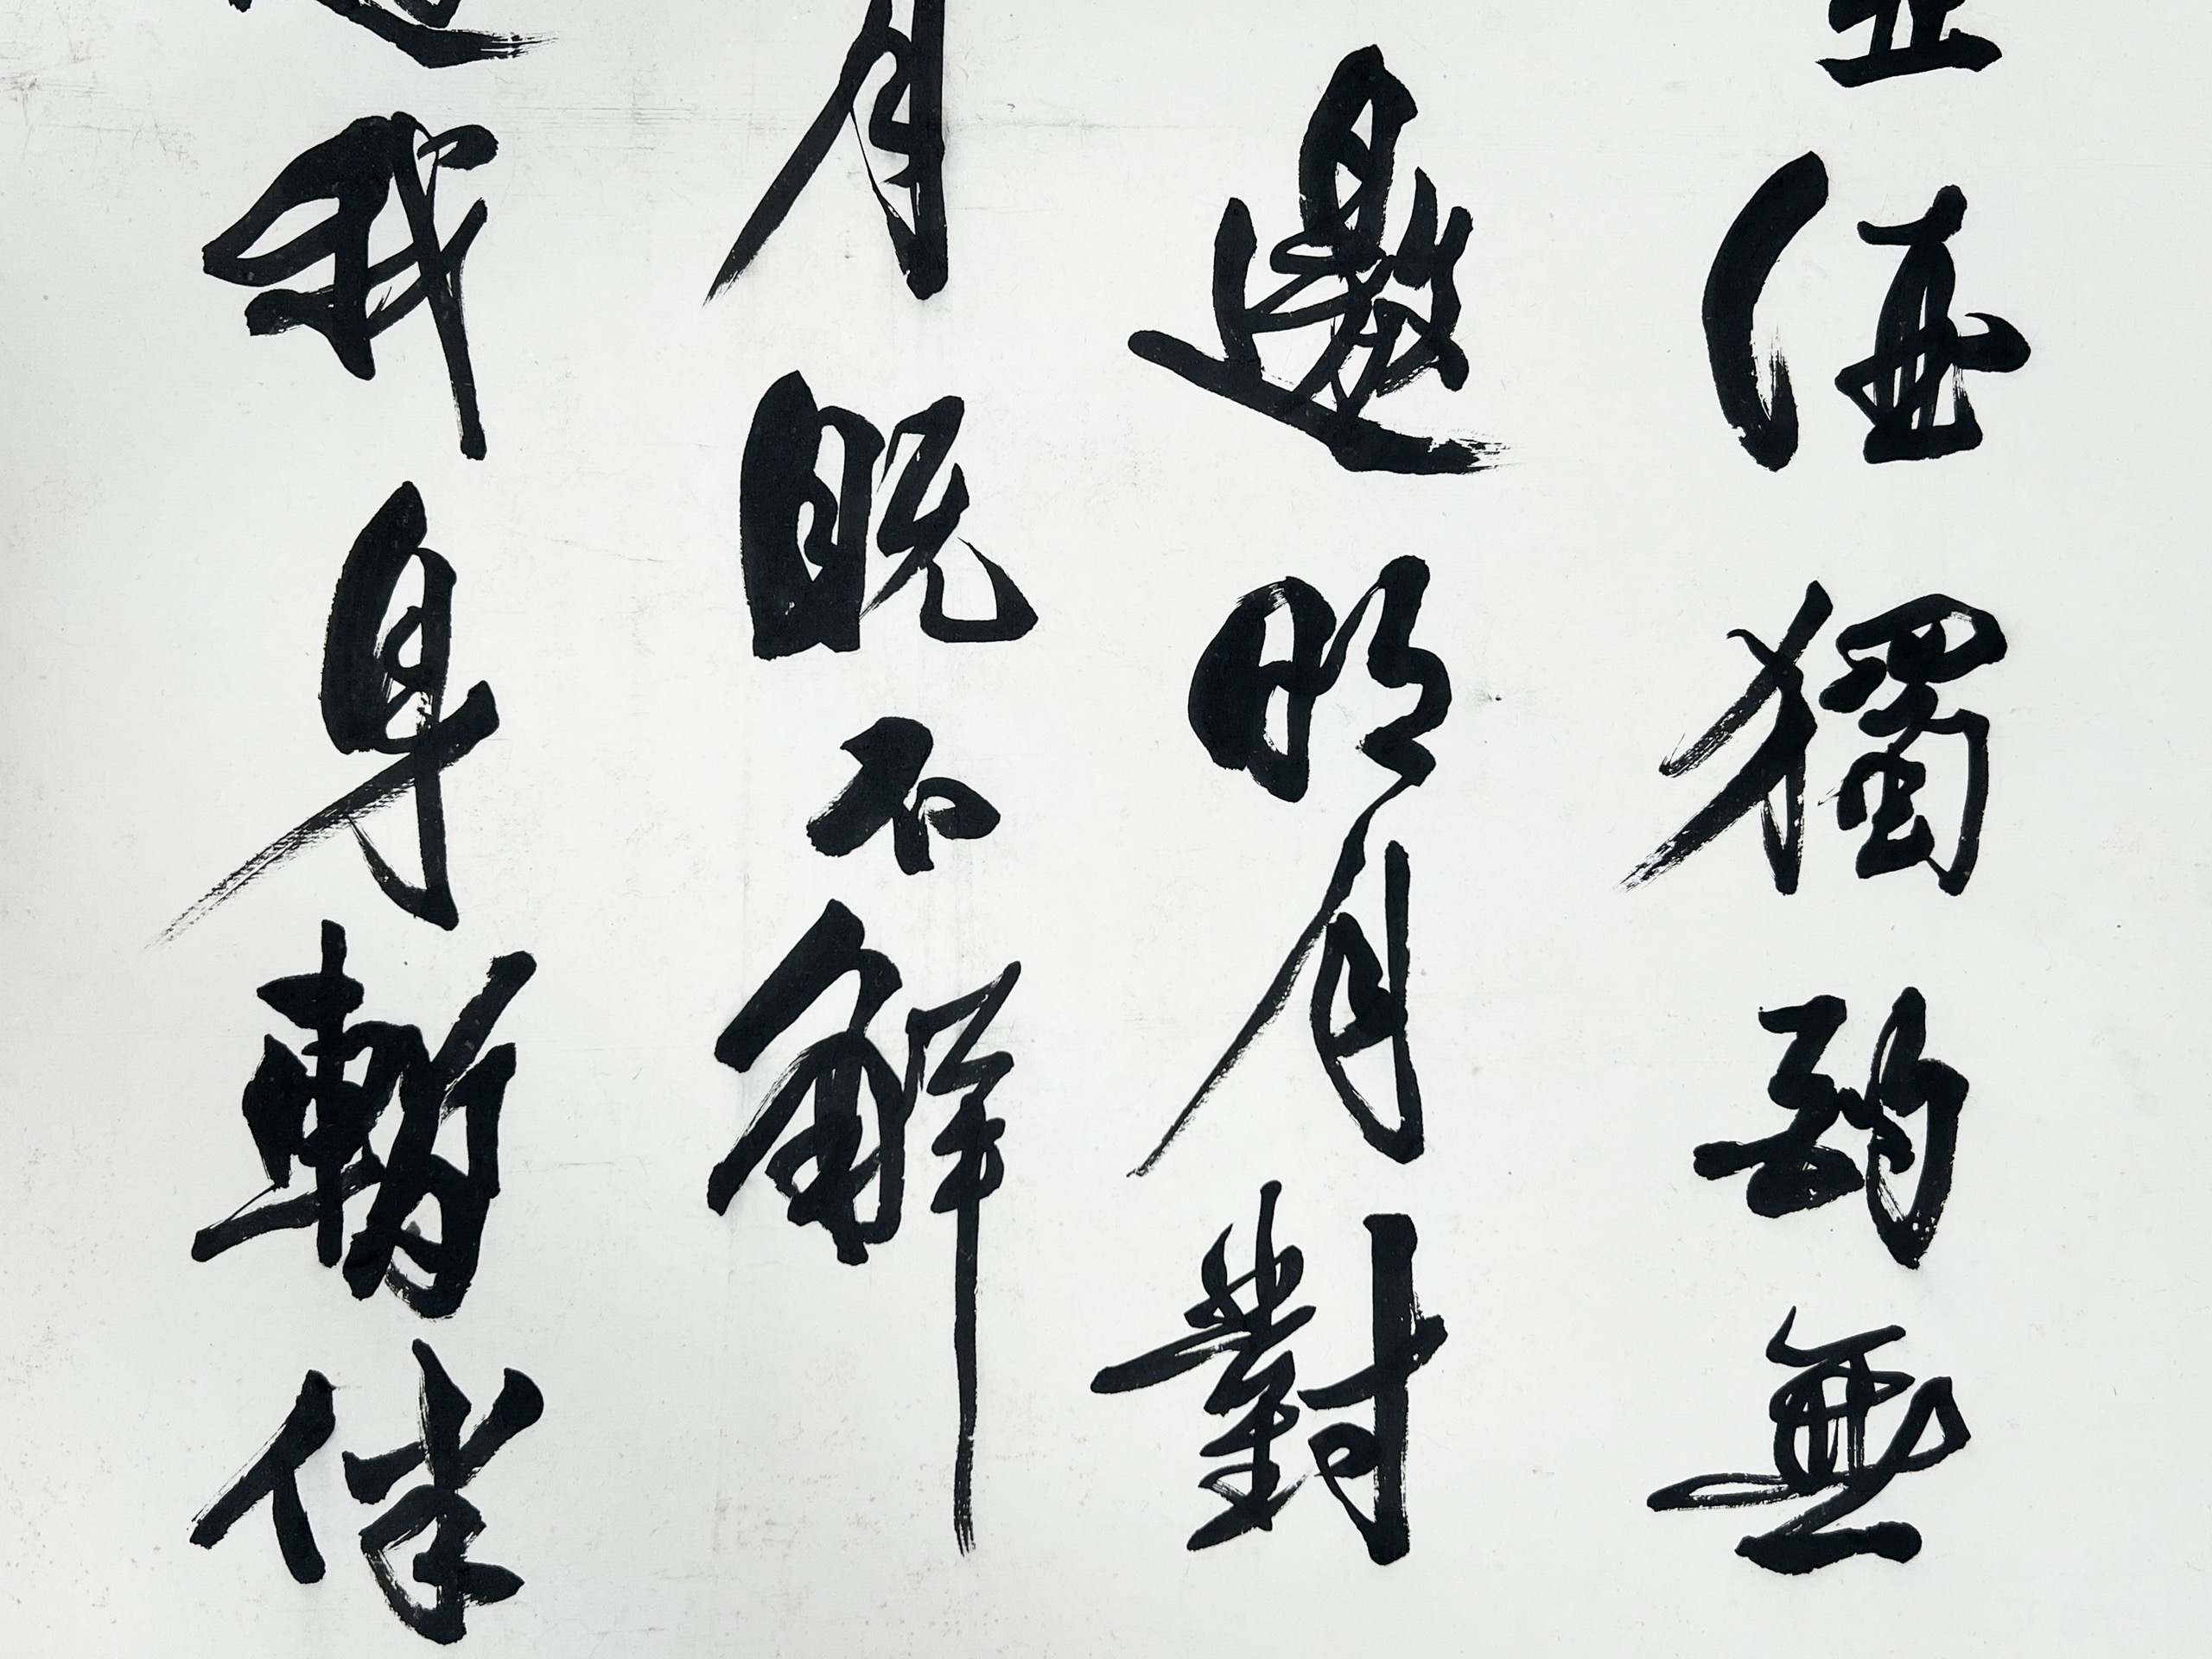 壺酒獨酌無
邀明月對
月既不解
隨我身暫伴